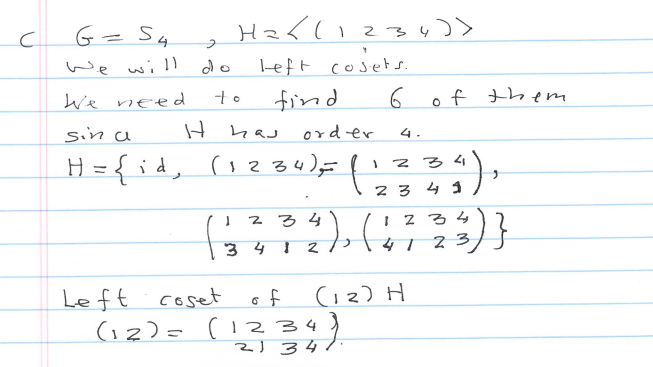 C G = S4 , H = <(1 2 3 4)>
We will do left cosets.
We need to find 6 of them
since H has order 4.
H = { id, (1 2 3 4) = ( 1 2 3 4
2 3 4 1 ),
( 1 2 3 4
3 4 1 2 ), ( 1 2 3 4
4 1 2 3 ) }
Left coset of (12) H
(12) = ( 1 2 3 4
2 1 3 4 ).